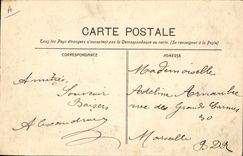 CARTE POSTALE
Tous les pays étrangers n'acceptent pas la Correspondance au recto. (Se renseigner à la Poste)
CORRESPONDANCE
ADRESSE
Amitiés
Souvenir
Baisers
Alexandrine
Mademoiselle
Adeline Arnambre
rue des Grands Carmes
30
Marseille
B.D.R